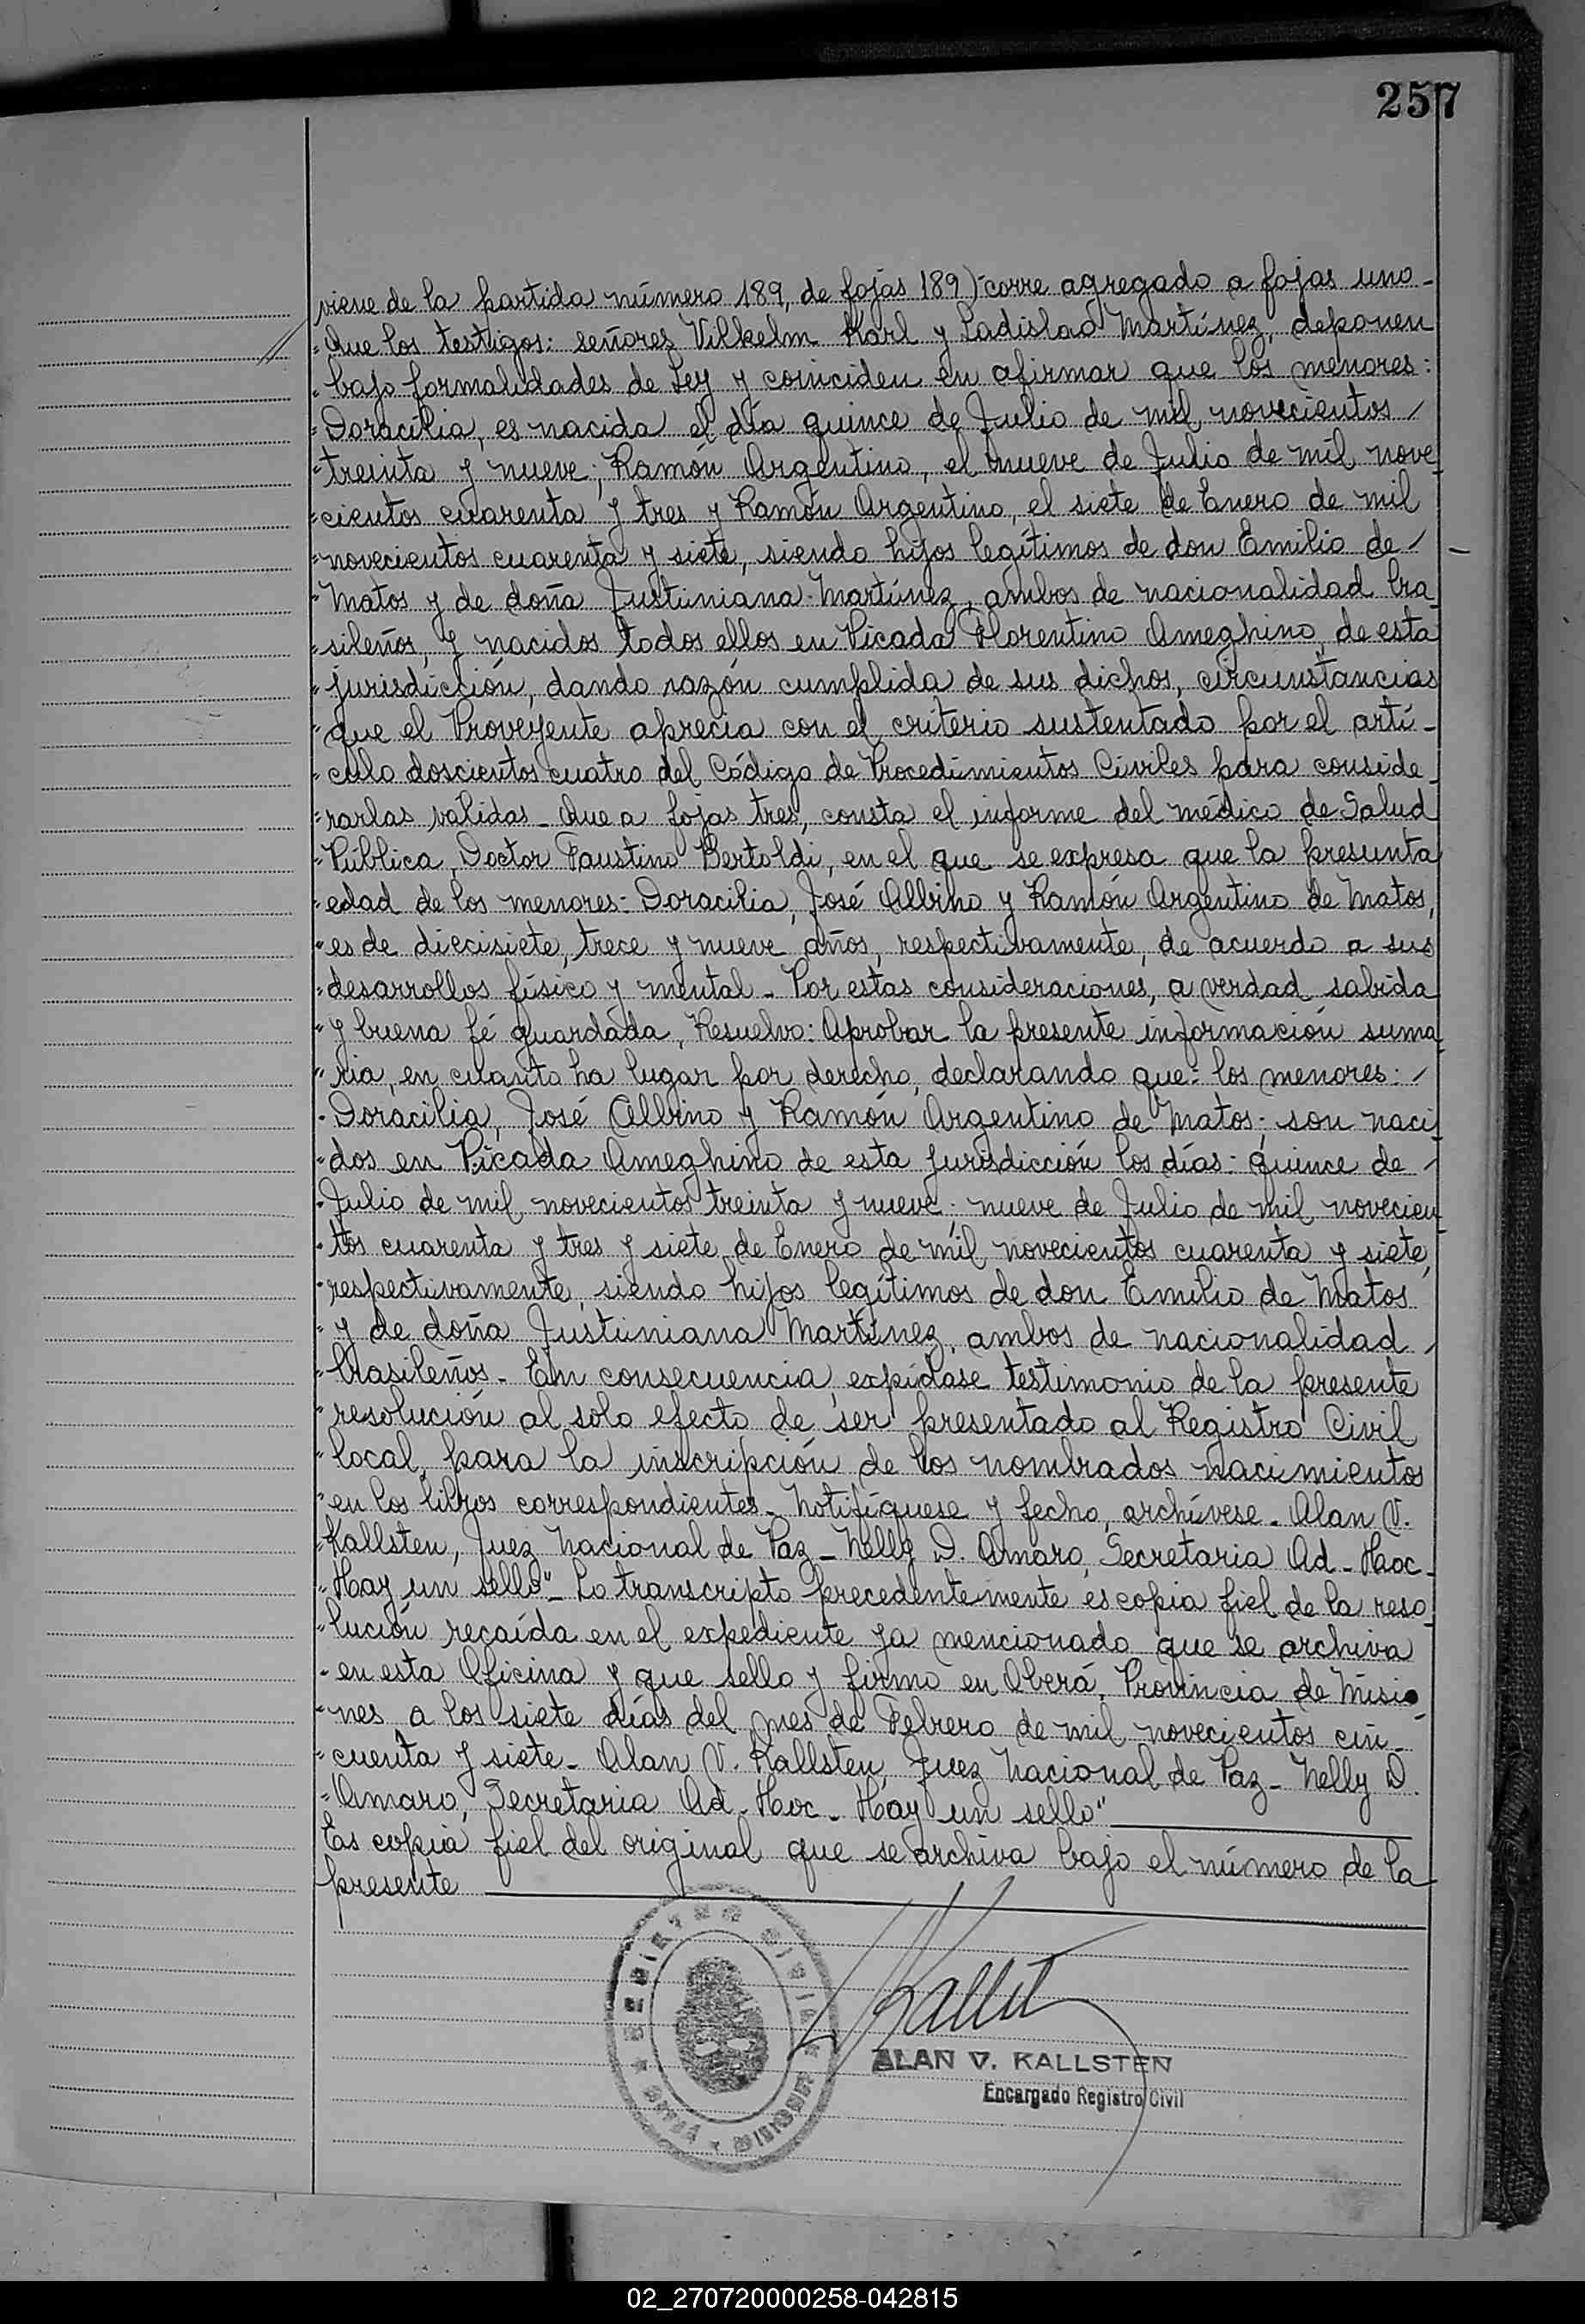 257
viene de la partida número 189, de fojas 189)-corre agregado a fojas uno-
"Que los testigos: señores Vilkelm Karl y Ladislao Martínez, deponen
"bajo formalidades de Ley y coinciden en afirmar que los menores:
"Doracilia, es nacida el día quince de Julio de mil novecientos /
"treinta y nueve; Ramón Argentino, el nueve de Julio de mil nove_
"cientos cuarenta y tres y Ramón Argentino, el siete de Enero de mil
"novecientos cuarenta y siete, siendo hijos legítimos de don Emilio de /
"Matos y de doña Justiniana Martínez, ambos de nacionalidad bra_
"sileños, y nacidos todos ellos en Picada Florentino Ameghino, de esta
"jurisdicción, dando razón cumplida de sus dichos, circunstancias
"que el Proveyente aprecia con el criterio sustentado por el artí-
"culo doscientos cuatro del Código de Procedimientos Civiles para conside_
"rarlas válidas_ Que a fojas tres, consta el informe del médico de Salud
"Pública, Doctor Faustino Bertoldi, en el que se expresa que la presunta
"edad de los menores: Doracilia, José Albino y Ramón Argentino de Matos,
"es de diecisiete, trece y nueve años, respectivamente, de acuerdo a sus
"desarrollos físico y mental_ Por estas consideraciones, a verdad sabida
"y buena fé guardada, Resuelvo: Aprobar la presente información suma_
"ria, en cuanto ha lugar por derecho, declarando que: los menores: /
"Doracilia, José Albino y Ramón Argentino de Matos; son naci_
"dos en Picada Ameghino de esta jurisdicción los días: quince de /
"Julio de mil novecientos treinta y nueve; nueve de Julio de mil novecien_
"tos cuarenta y tres y siete de Enero de mil novecientos cuarenta y siete,
"respectivamente, siendo hijos legítimos de don Emilio de Matos
"y de doña Justiniana Martínez, ambos de nacionalidad /
"brasileños_ En consecuencia, expídase testimonio de la presente
"resolución al solo efecto de ser presentado al Registro Civil
"local, para la inscripción de los nombrados nacimientos
"en los libros correspondientes_ Notifíquese y fecho, archívese_ Alan V.
"Kallsten, Juez Nacional de Paz_ Nelly D. Amaro, Secretaria Ad-Hoc_
"Hay un sello"_ Lo transcripto precedentemente es copia fiel de la reso_
"lución recaída en el expediente ya mencionado que se archiva
"en esta Oficina y que sello y firmo en Oberá, Provincia de Misio_
"nes, a los siete días del mes de Febrero de mil novecientos cin_
"cuenta y siete_ Alan V. Kallsten, Juez Nacional de Paz_ Nelly D.
"Amaro, Secretaria Ad-Hoc_ Hay un sello"
Es copia fiel del original que se archiva bajo el número de la
presente
REGISTRO CIVIL
OBERÁ MISIONES
Kallst
ALAN V. KALLSTEN
Encargado Registro Civil
02_270720000258-042815